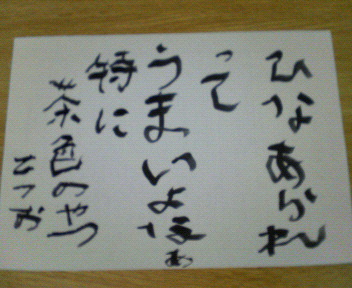 ひなあられ
って
うまいよなぁ
特に
茶色のやつ